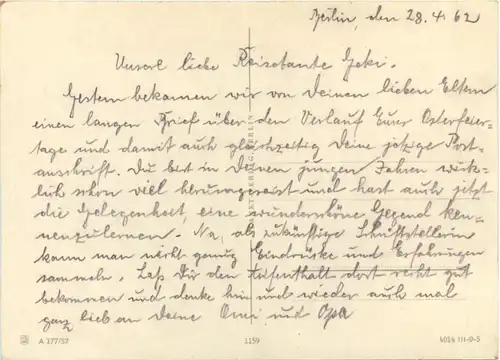 Berlin, den 28.4.62
Unsere liebe Reisetante Geki.
Gestern bekamen wir von Deinen lieben Eltern
einen langen Brief über den Verlauf Eurer Osterfeier-
tage und damit auch gleichzeitig Deine jetzige Post-
anschrift. Du bist in Deinen jungen Jahren wirk-
lich schon viel herumgereist und hast auch jetzt
die Gelegenheit, eine wunderschöne Gegend ken-
nenzulernen. Na, als zukünftige Schriftstellerin
kann man nicht genug Eindrücke und Erfahrungen
sammeln. Laß Dir den Aufenthalt dort recht gut
bekommen und denke hin und wieder auch mal
ganz lieb an Deine Omi und Opa
A 377/57
1159
4014 III-9-5